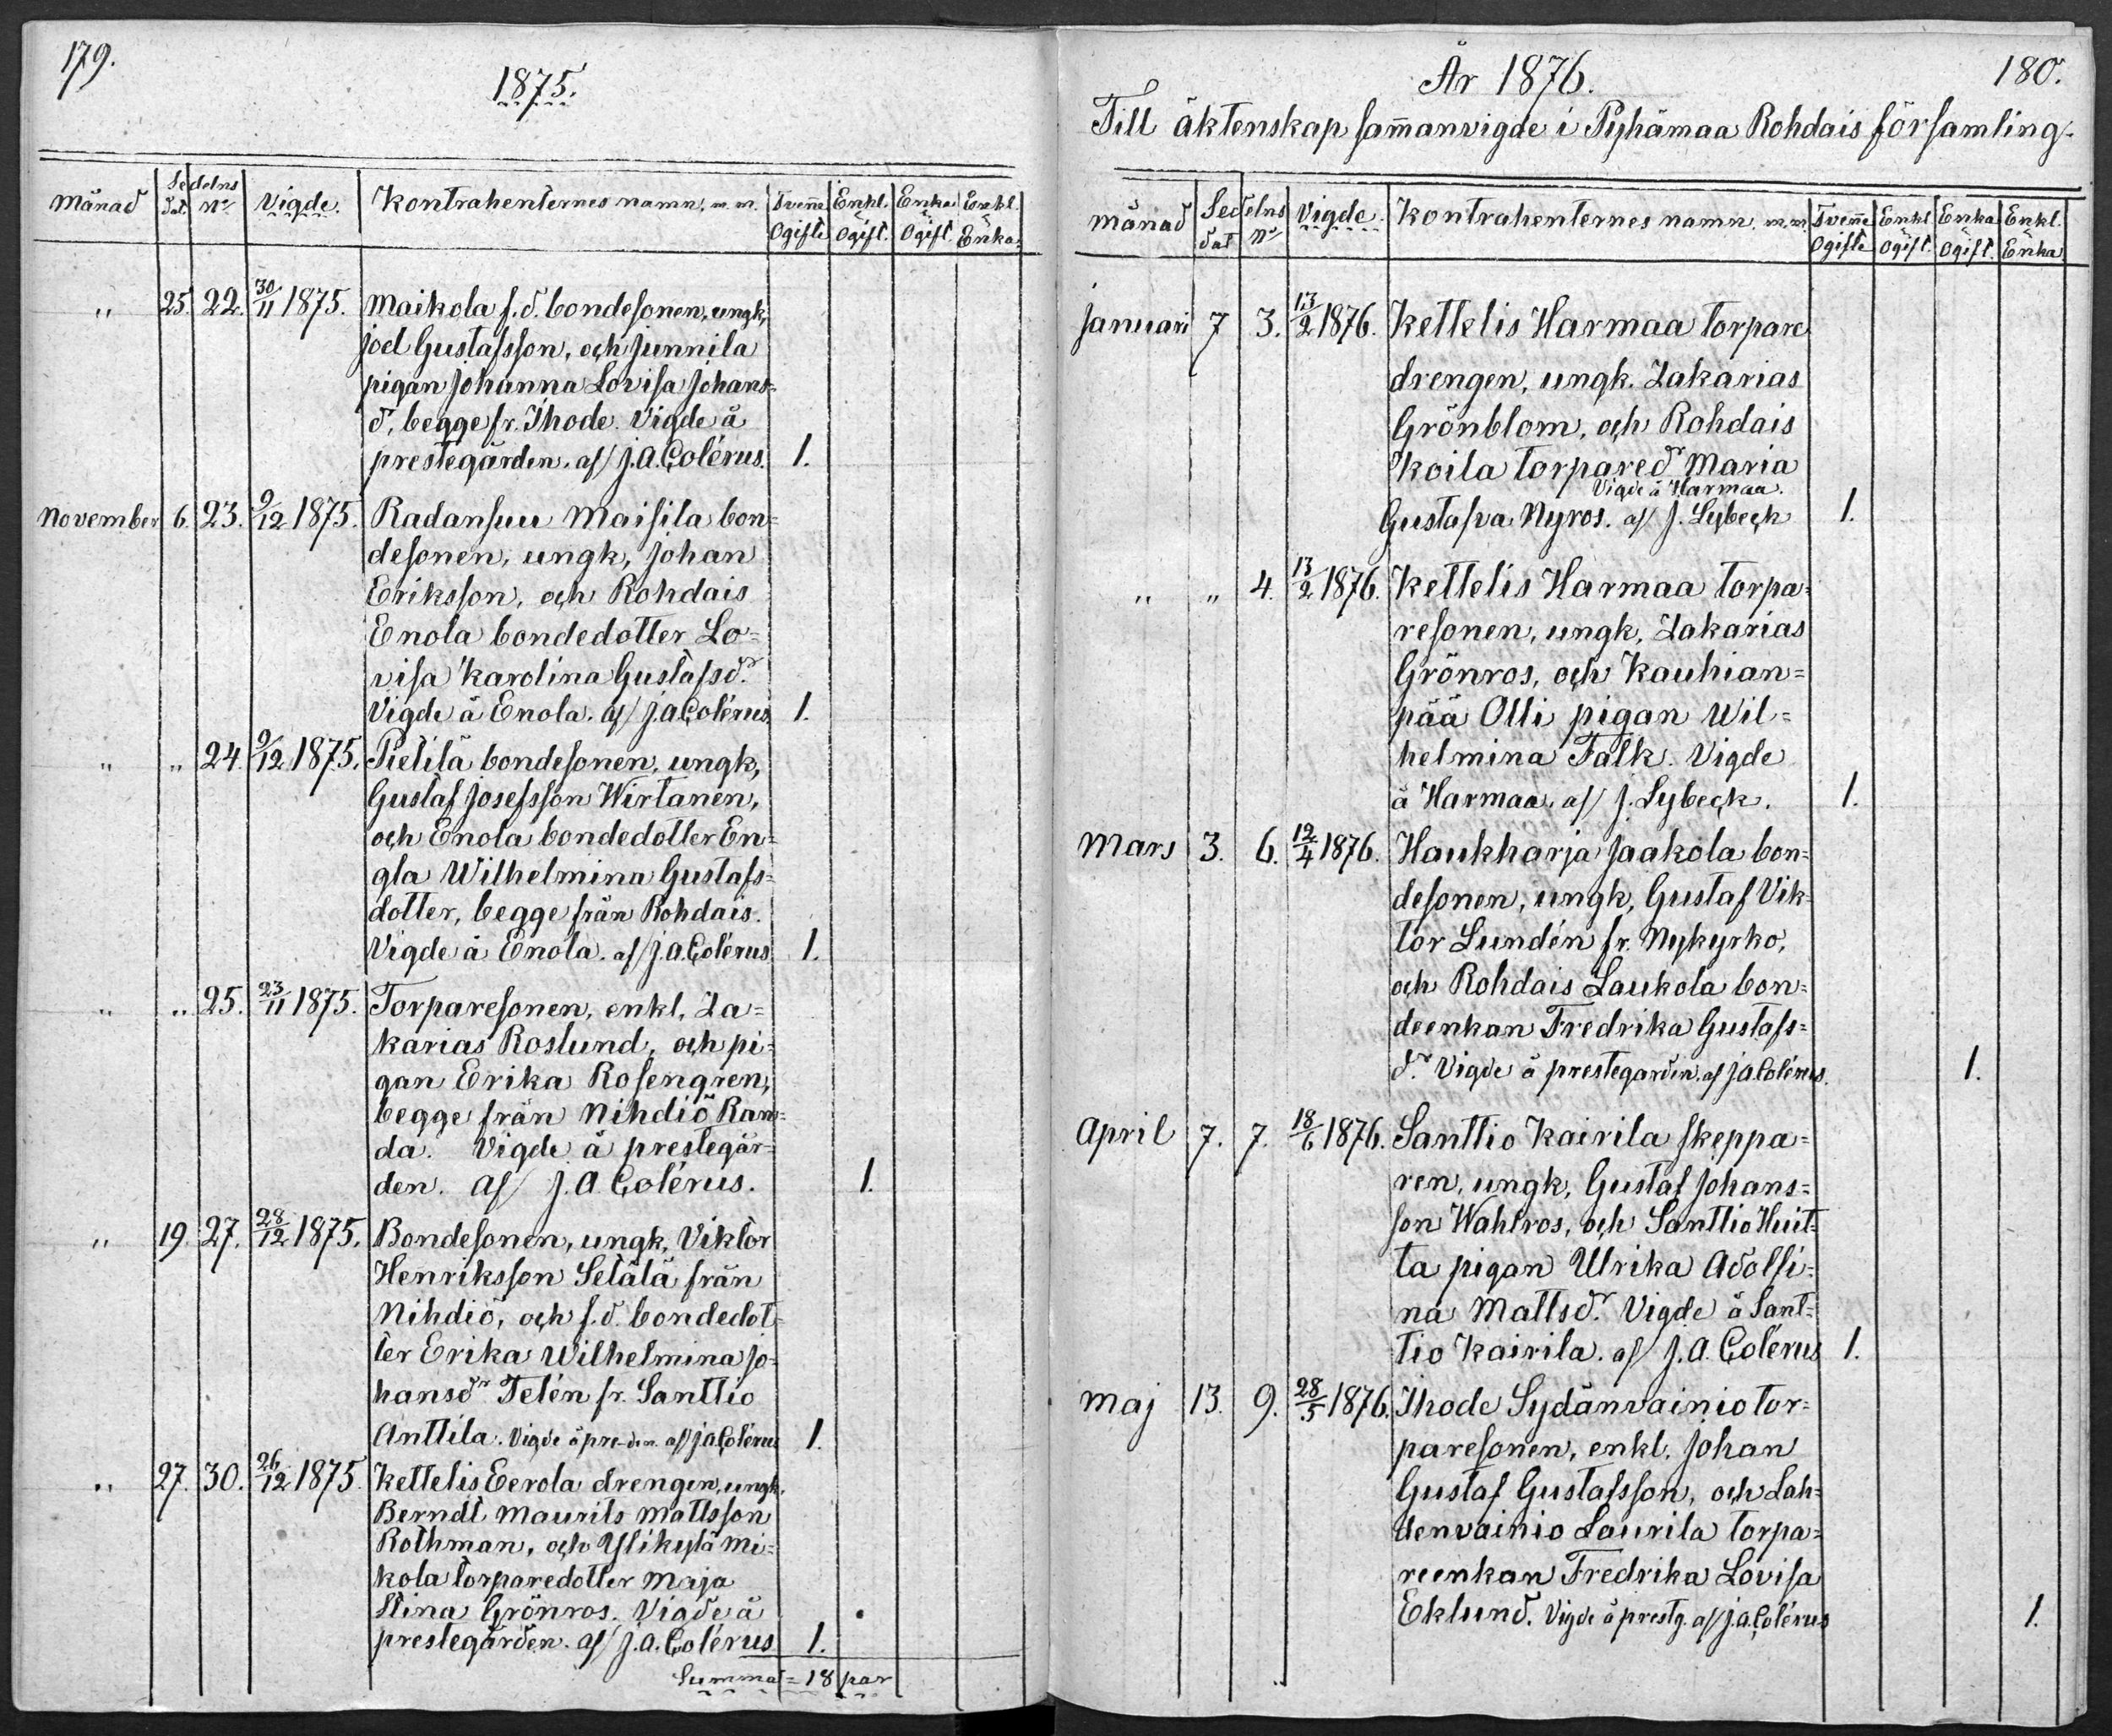 179.
1875.
Månad Sedelns dat. No Vigde. Kontrahenternes namn, m. m. Tvenne Ogifte Enkl. Ogift. Enka Ogift. Enkl. Enka.
" 25. 22. 30/11 1875. Maikola f. d. bondesonen, ungk,
Joel Gustafsson, och Junnila
pigan Johanna Lovisa Johans=
d, begge fr. Ihode. Vigde å
prestegården. af J. A. Colérus. 1.
November 6. 23. 9/12 1875. Radansuu Maisila bon=
desonen, ungk, Johan
Eriksson, och Rohdais
Enola bondedotter Lo=
visa Karolina Gustafsdr.
Vigde å Enola. af J. A. Colérus 1.
" " 24. 9/12 1875. Pietilä bondesonen, ungk,
Gustaf Josefsson Wirtanen,
och Enola bondedotter En=
gla Wilhelmina Gustafs=
dotter, begge från Rohdais.
Vigde å Enola. af J. A. Colérus 1.
" " 25. 23/11 1875. Torparesonen, enkl, Za=
karias Roslund, och pi=
gan Erika Rosengren,
begge från Nihdiö Ran=
da. Vigde å prestegår=
den. af J. A. Colérus. 1.
" 19. 27. 28/12 1875. Bondesonen, ungk, Viktor
Henriksson Setälä från
Nihdiö, och f. d. bondedot=
ter Erika Wilhelmina Jo=
hansdr Telén fr. Santtio
Anttila. Vigde å pre-den. af J. A. Colérus 1.
" 27. 30. 26/12 1875. Kettelis Eerola drengen, ungk,
Berndt Maurits Mattsson
Rothman, och Ylikylä Mi=
kola torparedotter Maja
Stina Grönros. Vigde å
prestegården. af J. A. Colérus 1.
Summa = 18 par
180.
År 1876.
Till äktenskap sammanvigde i Pyhämaa Rohdais församling.
Månad Sedelns dat No Vigde. Kontrahenternes namn. m. m. Tvenne Ogifte Enkl Ogift. Enka Ogift. Enkl. Enka
Januari 7 3. 13/2 1876. Kettelis Harmaa torpare
drengen, ungk. Zakarias
Grönblom, och Rohdais
Koila torparedr Maria
Vigde å Harmaa.
Gustafva Nyros. af J. Lybeck 1.
" " 4. 13/2 1876. Kettelis Harmaa torpa=
resonen, ungk, Zakarias
Grönros, och Kauhian=
pää Olli pigan Wil=
helmina Falk. Vigde
å Harmaa. af J. Lybeck. 1.
Mars 3. 6. 19/4 1876. Haukharja Jaakola bon=
desonen, ungk, Gustaf Vik=
tor Lundén fr. Nykyrko,
och Rohdais Laukola bon=
deenkan Fredrika Gustafs=
dr. Vigde å prestegården. af J. A. Colérus. 1.
April 7. 7. 18/6 1876. Santtio Kairila skeppa=
ren, ungk, Gustaf Johans=
son Wahlros, och Santtio Huit=
ta pigan Ulrika Adolfi=
na Mattsdr. Vigde å Sant=
tio Kairila. af J. A. Colérus 1.
Maj 13. 9. 28/5 1876. Ihode Sydänvainio tor=
paresonen, enkl. Johan
Gustaf Gustafsson, och Lah=
denvainio Laurila torpa=
reenkan Fredrika Lovisa
Eklund. Vigde å prestg. af J. A. Colérus 1.